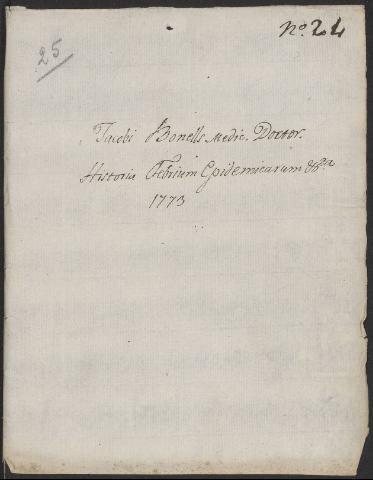 nº. 24
25
Jacobi Bonells Medic. Doctor.
Historia Febrium Epidemicarum &ª
1773